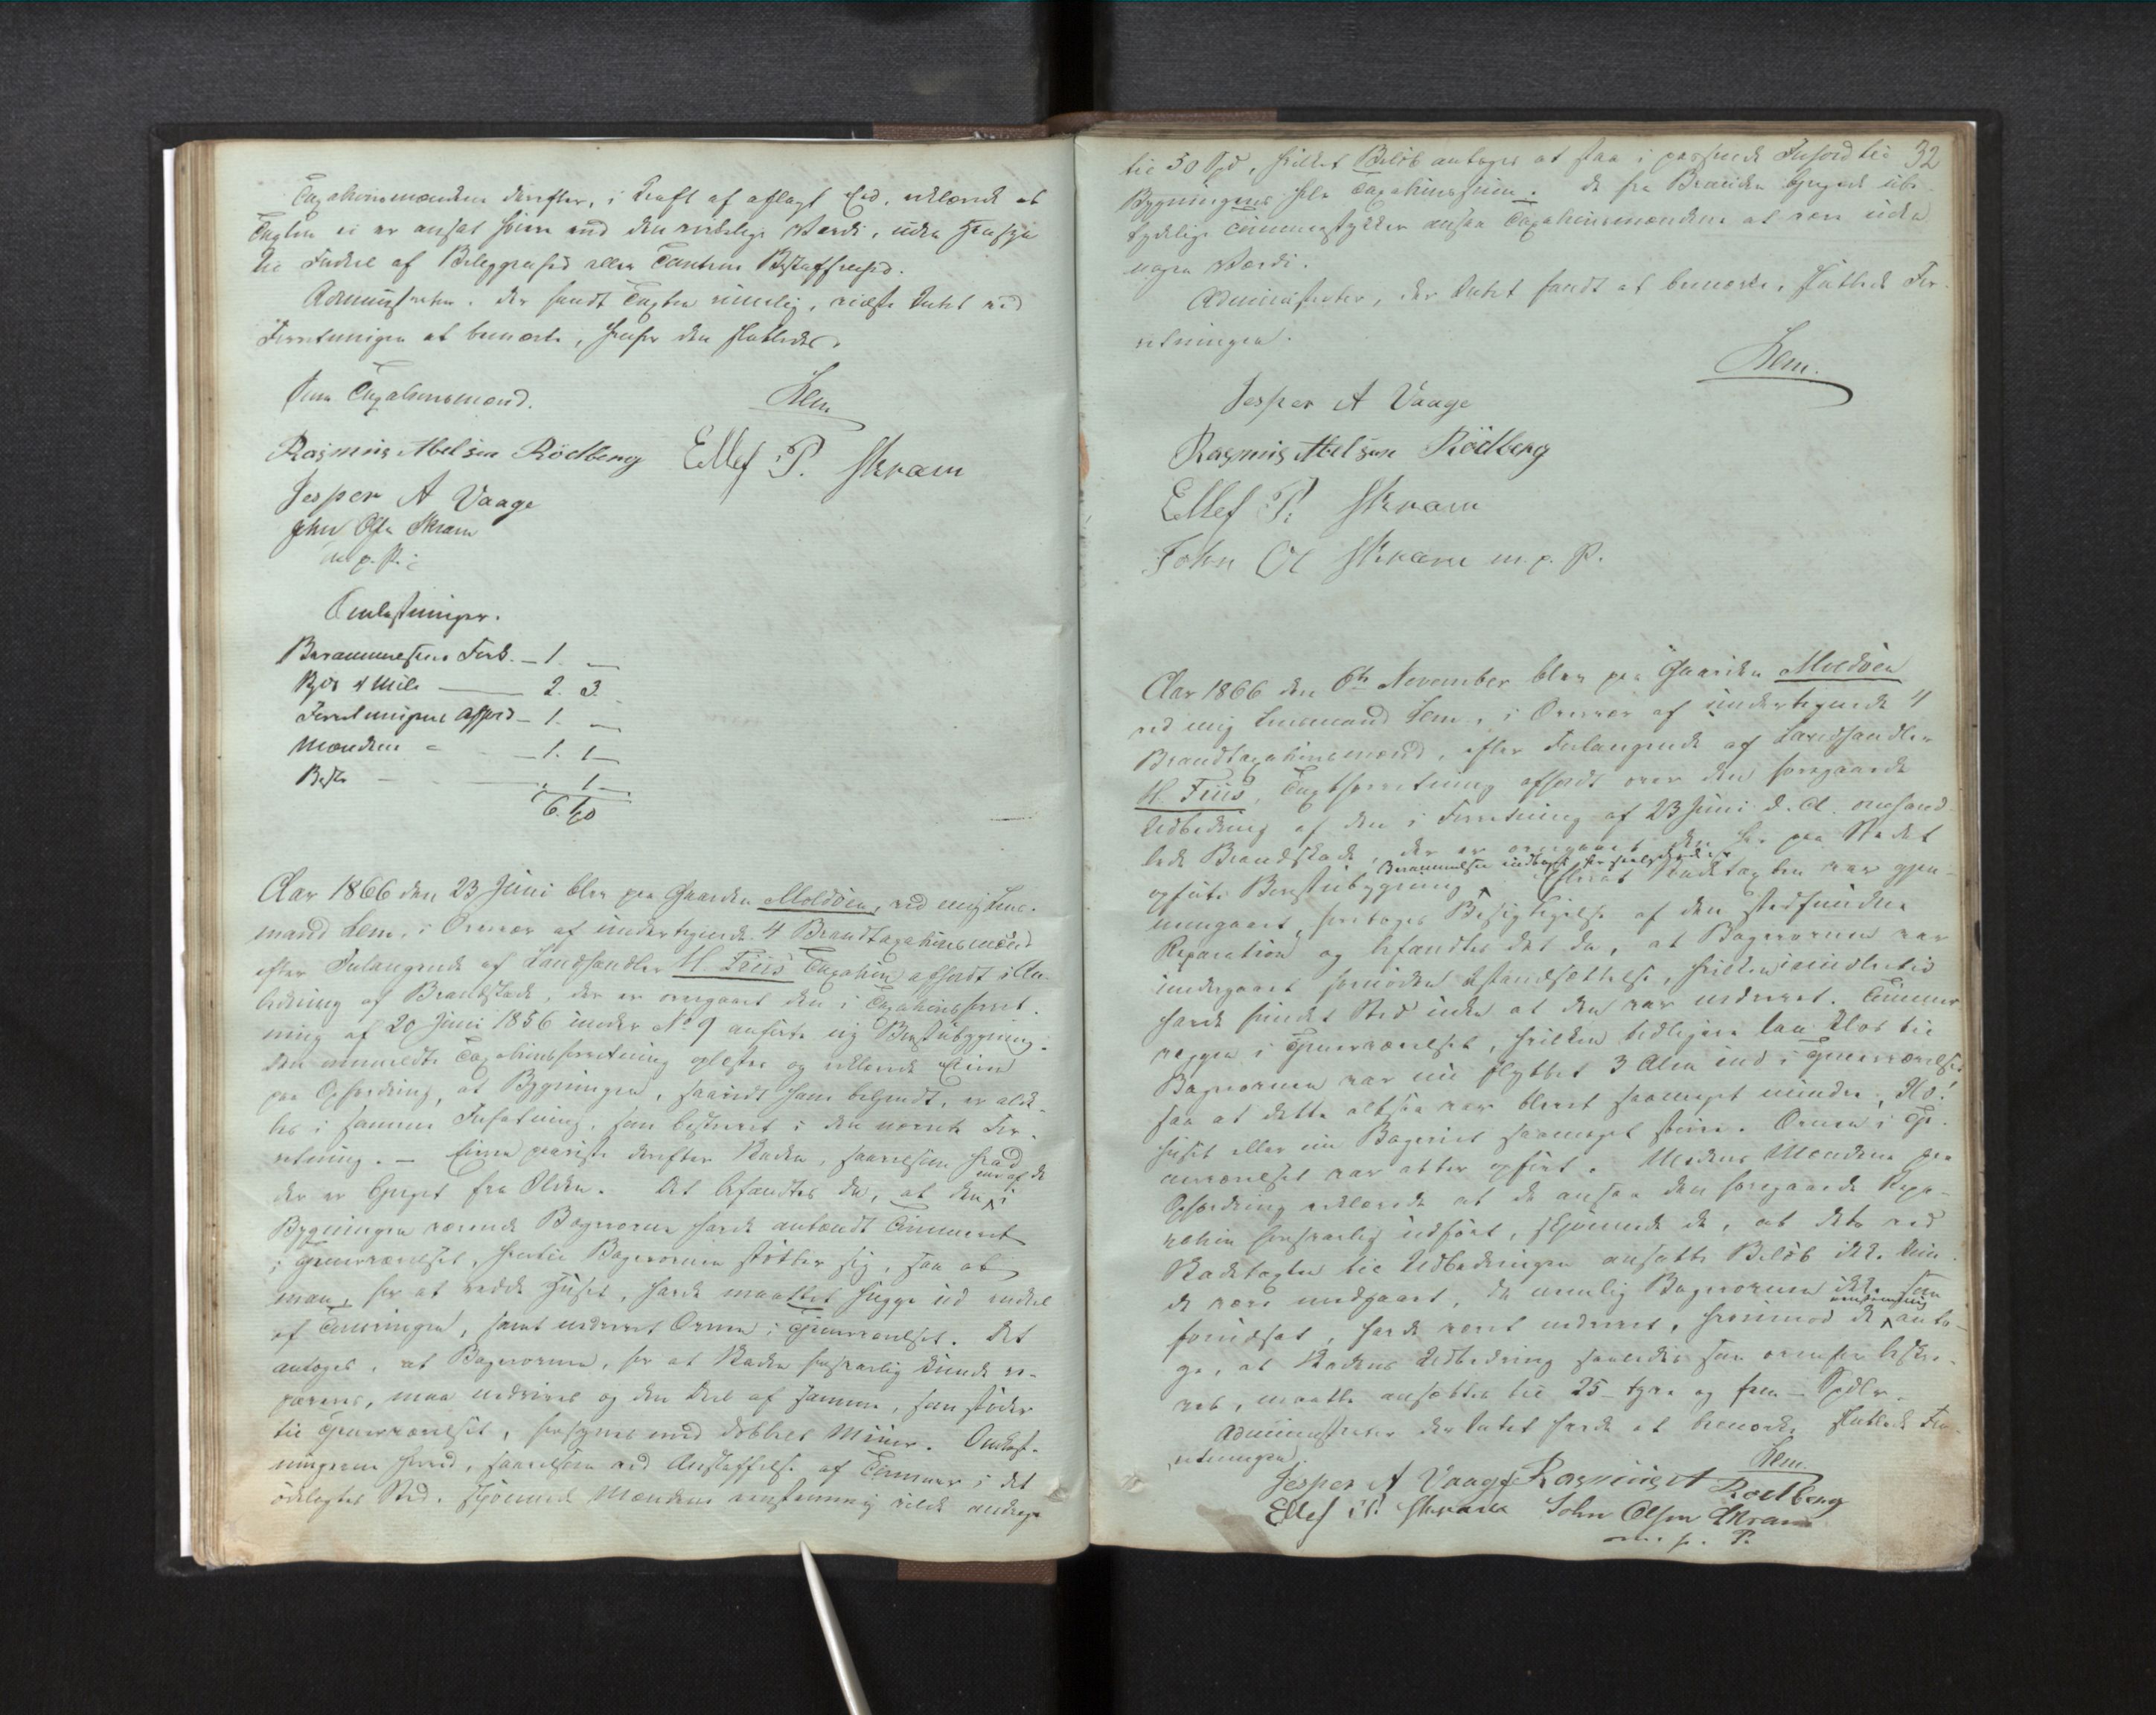 Taxationsmændene derefter, i Kraft af aflagt Eed, erklærede at
Taxten ei er ansat høiere end den virkelige Værdi, uden Hensyn
til Fordeel af Beliggenhed eller Tomtens Beskaffenhed.
Administrator, der fandt Taxten rimelig, vidste Intet ved
Forretningen at bemærke, hvorfor den sluttedes.
Som Taxationsmænd.
Lem
Rasmus Abelsen Rödberg
Ellef P. Skram
Jesper A Vaage
John Olsen Skram
m. p. P.
Omkostninger.
Berammelsens Fork. – 1. –
Kjös 4 Mile – 2. 3.
Forretningens Afhold – 1. –
Mændene – 1. 1 –
– 1 –
6. 
Aar 1866 den 23 Juni blev paa Gaarden Moldöen, ved mig Lens-
mand Lem, i Overvær af undertegnede 4 Brandtaxationsmænd
efter Forlangende af Landhandler H. Friis Taxation afholdt i An-
ledning af Brandskade, der er overgaaet den i Taxationsforret-
ning af 20 Juni 1856 under No 9 anførte ny Borgstubygning.
Den anmeldte Taxationsforretning oplæstes og erklærede Eieren
paa Opfordring, at Bygningen, saavidt ham bekjendt, er alde-
les i samme Forfatning, som beskrevet i den nævnte For-
retning. – Eieren paaviste derefter Skaden, saavelsom hvad
der er bjerget fra Ilden. Det befandtes da, at den een af de i
Bygningen værende Bagerovne havde antændt Tømmeret
i Gjenværelset, hvortil Bagerovnen støtter sig, saa at
man, for at redde Huset, havde maattet hugge ud endeel
af Tømringen, samt nedrevet Ovnen i Gjenværelset. Det
antoges, at Bagerovnen, for at Skaden forsvarlig kunde re-
pareres, maa nedrives og den Deel af samme, som støder
til Gjenværelset, forsynes med dobbelt Muur. Omkost-
ningerne herved, saavelsom ved Anskaffelse af Tømmer i det
ødelagtes Sted, skjønnede Mændene eenstemmig vilde andrage
32
til 50 Spd, hvilket Beløb antages at staa i passende Forhold til
Bygningens hele Taxationssum. De fra Branden bjergede ube-
tydelige Tømmerstykker ansaa Taxationsmændene at være uden
nogen Værdi.
Administrator, der Intet fandt at bemærke, sluttede For-
retningen.
Lem.
Jesper A Vaage
Rasmus Abelsen Rödberg
Ellef P. Skram
John Ol Skram m. p. P.
Aar 1866 den 6te November blev paa Gaarden Moldöen
ved mig Lensmand Lem, i Overvær af undertegnede 4
Brandtaxationsmænd, efter Forlangende af Landhandler
H. Friis, Taxtforretning afholdt over den foregaaede
Udbedring af den i Forretning af 23 Juni d. A. omhand-
lede Brandskade, der er overgaaet den her paa Stedet
opførte Borgstubygning. Berammelsen
Efterat Skadetaxten var gjen-
nemgaaet, foretoges Besigtigelse af den stedfundne
Reparation og befandtes det da, at Bagerovnen var
undergaaet fornøden Istandsættelse, hvilken imidlertid
havde fundet Sted uden at den var nedrevet. Tømmer
væggen i Gjenværelset, hvilken tidligere laa Klos til
Bagerovnen var nu flyttet 3 Alen ind i Gjenværelset
saa at dette altsaa var blevet saameget mindre,
huset eller nu Bageriet saameget større. Ovnen i Gj.
enværelset var atter opført. Medens Mændene paa
Opfordring erklærede at de ansaa den foregaaede Repa-
ration forsvarlig udført, skjønnede de, at dets ved
Skadetaxten til Udbedringen ansatte Beløb ikke kun-
de være medgaaet, da nemlig Bagerovnen ikke, som
forudsat, havde været nedrevet, hvorimod de eenstemmig anto-
ge, at Skadens Udbedring saaledes som ovenfor beskre-
vet, maatte ansættes til 25 – tyve og fem – Spdlr.
Administrator der Intet havde at bemærke sluttede For-
retningen.
Lem.
Jesper A Vaage Rasmus A Rödberg
Ellef P. Skram John Olsen Skram
m. p. P.